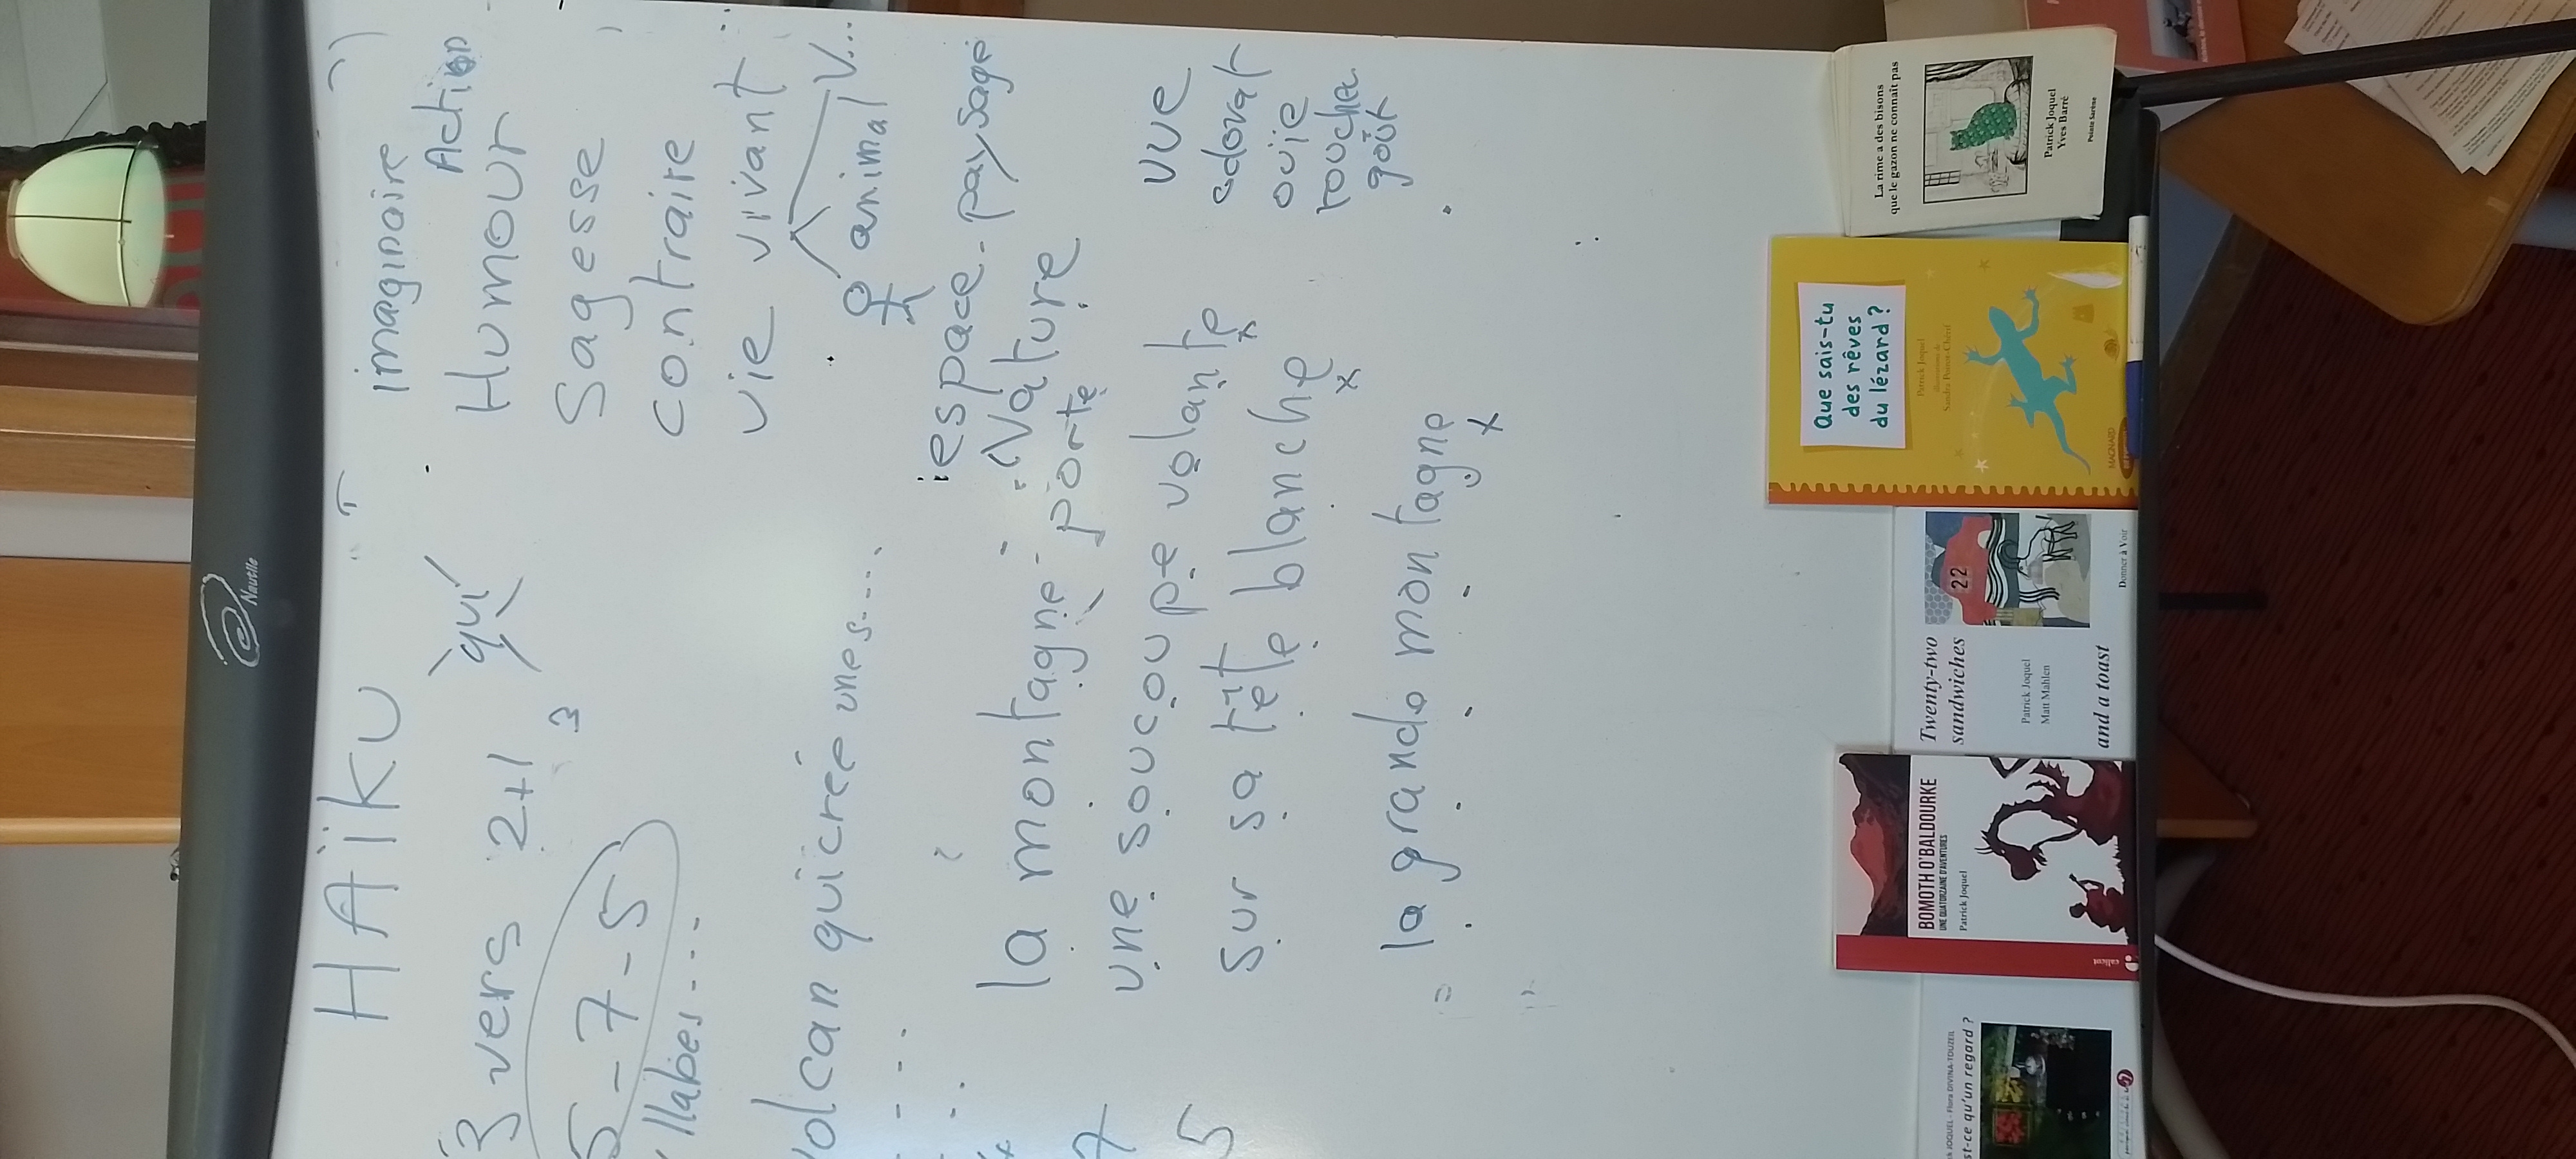 Nautile
HAïKU
imaginaire
Action
3 vers 2+1
qui
Humour
3
Sagesse
5-7-5
contraire
llabes...
vie vivant
animal V...
volcan qui crée unes....
espace - paysage
Nature
la montagne porte
7 une soucoupe volante
5 sur sa tête blanche
la grande montagne
vue
odorat
ouie
touche
goût
La rime a des bisons
que le gazon ne connaît pas
Patrick Joquel
Yves Barré
Pointe Sarène
Que sais-tu
des rêves
du lézard ?
Patrick Joquel
illustrations de
MAGNARD
22
Twenty-two
sandwiches
Patrick Joquel
Matt Mahlen
and a toast
Donner à Voir
BOMOTH O'BALDOURKE
UNE QUATORZAINE D'AVENTURES
Patrick Joquel
calicot
JOQUEL - Flora DIVINA-TOUZEIL
st-ce qu'un regard ?